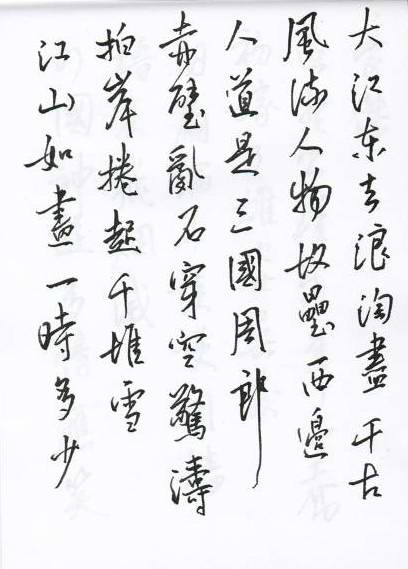 大江东去浪淘盡千古
風流人物故壘西邊
人道是三國周郎
赤壁亂石穿空驚濤
拍岸捲起千堆雪
江山如畫一時多少